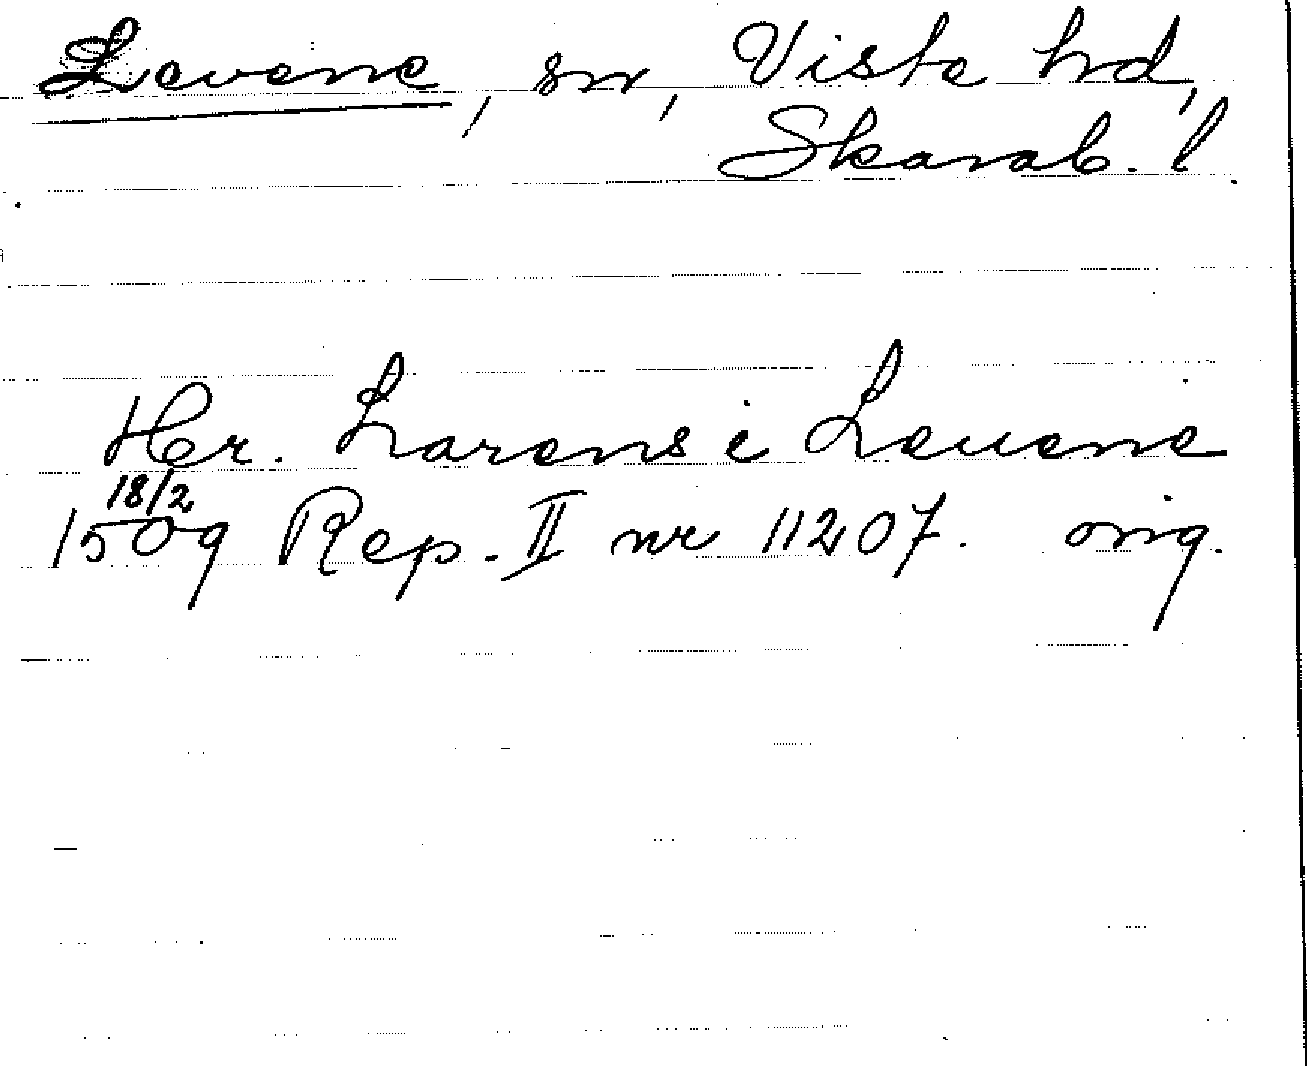 Levene, sn, Viste hd,
Skarab. l.
Her. Larens i Leuene
18/2
1509 Rep. II nr 11207. orig.